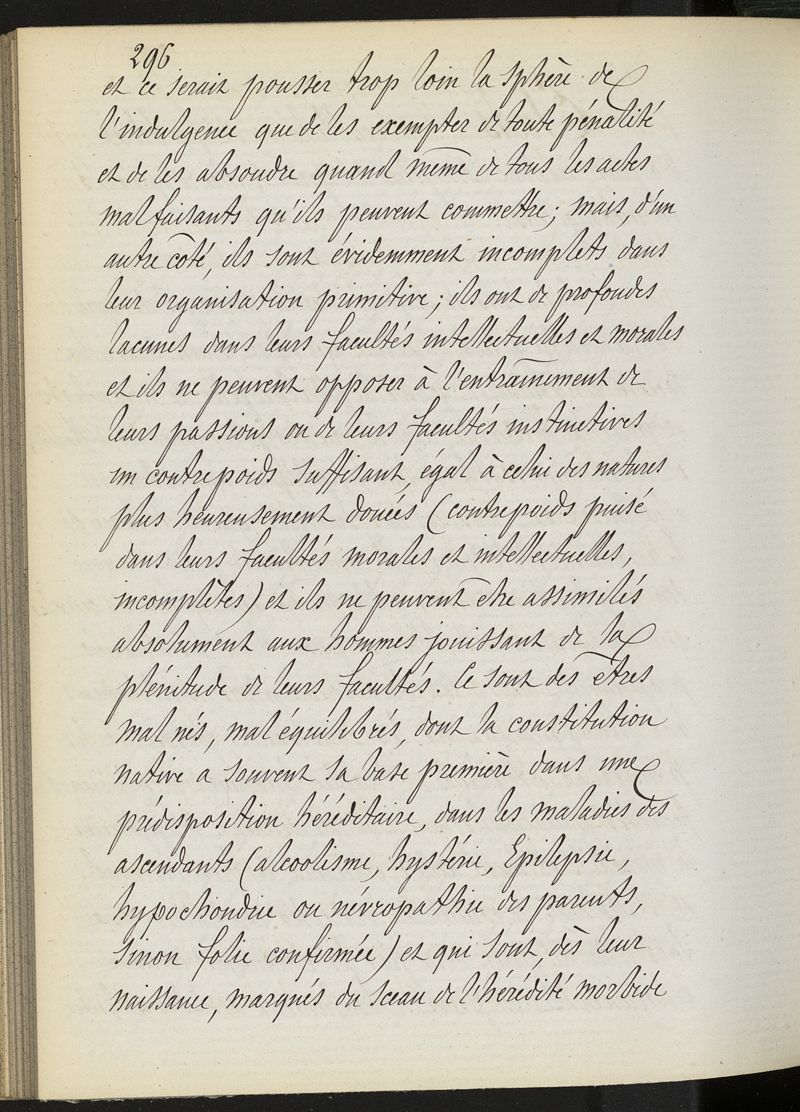 296
et ce serait pousser trop loin la sphère de
l'indulgence que de les exempter de toute pénalité
et de les absoudre quand même de tous les actes
malfaisants qu'ils peuvent commettre; mais, d'un
autre côté, ils sont évidemment incomplets dans
leur organisation primitive; ils ont de profondes
lacunes dans leurs facultés intellectuelles et morales
et ils ne peuvent opposer à l'entraînement de
leurs passions ou de leurs facultés instinctives
un contrepoids suffisant, égal à celui des natures
plus heureusement douées (contrepoids puisé
dans leurs facultés morales et intellectuelles,
incomplètes) et ils ne peuvent être assimilés
absolument aux hommes jouissant de la
plénitude de leurs facultés. Ce sont des êtres
mal nés, mal équilibrés, dont la constitution
native a souvent sa base première dans une
prédisposition héréditaire, dans les maladies des
ascendants (alcoolisme, hystérie, Epilepsie,
hypochondrie ou névropathie des parents,
sinon folie confirmée) et qui sont, dès leur
naissance, marqués du sceau de l'hérédité morbide